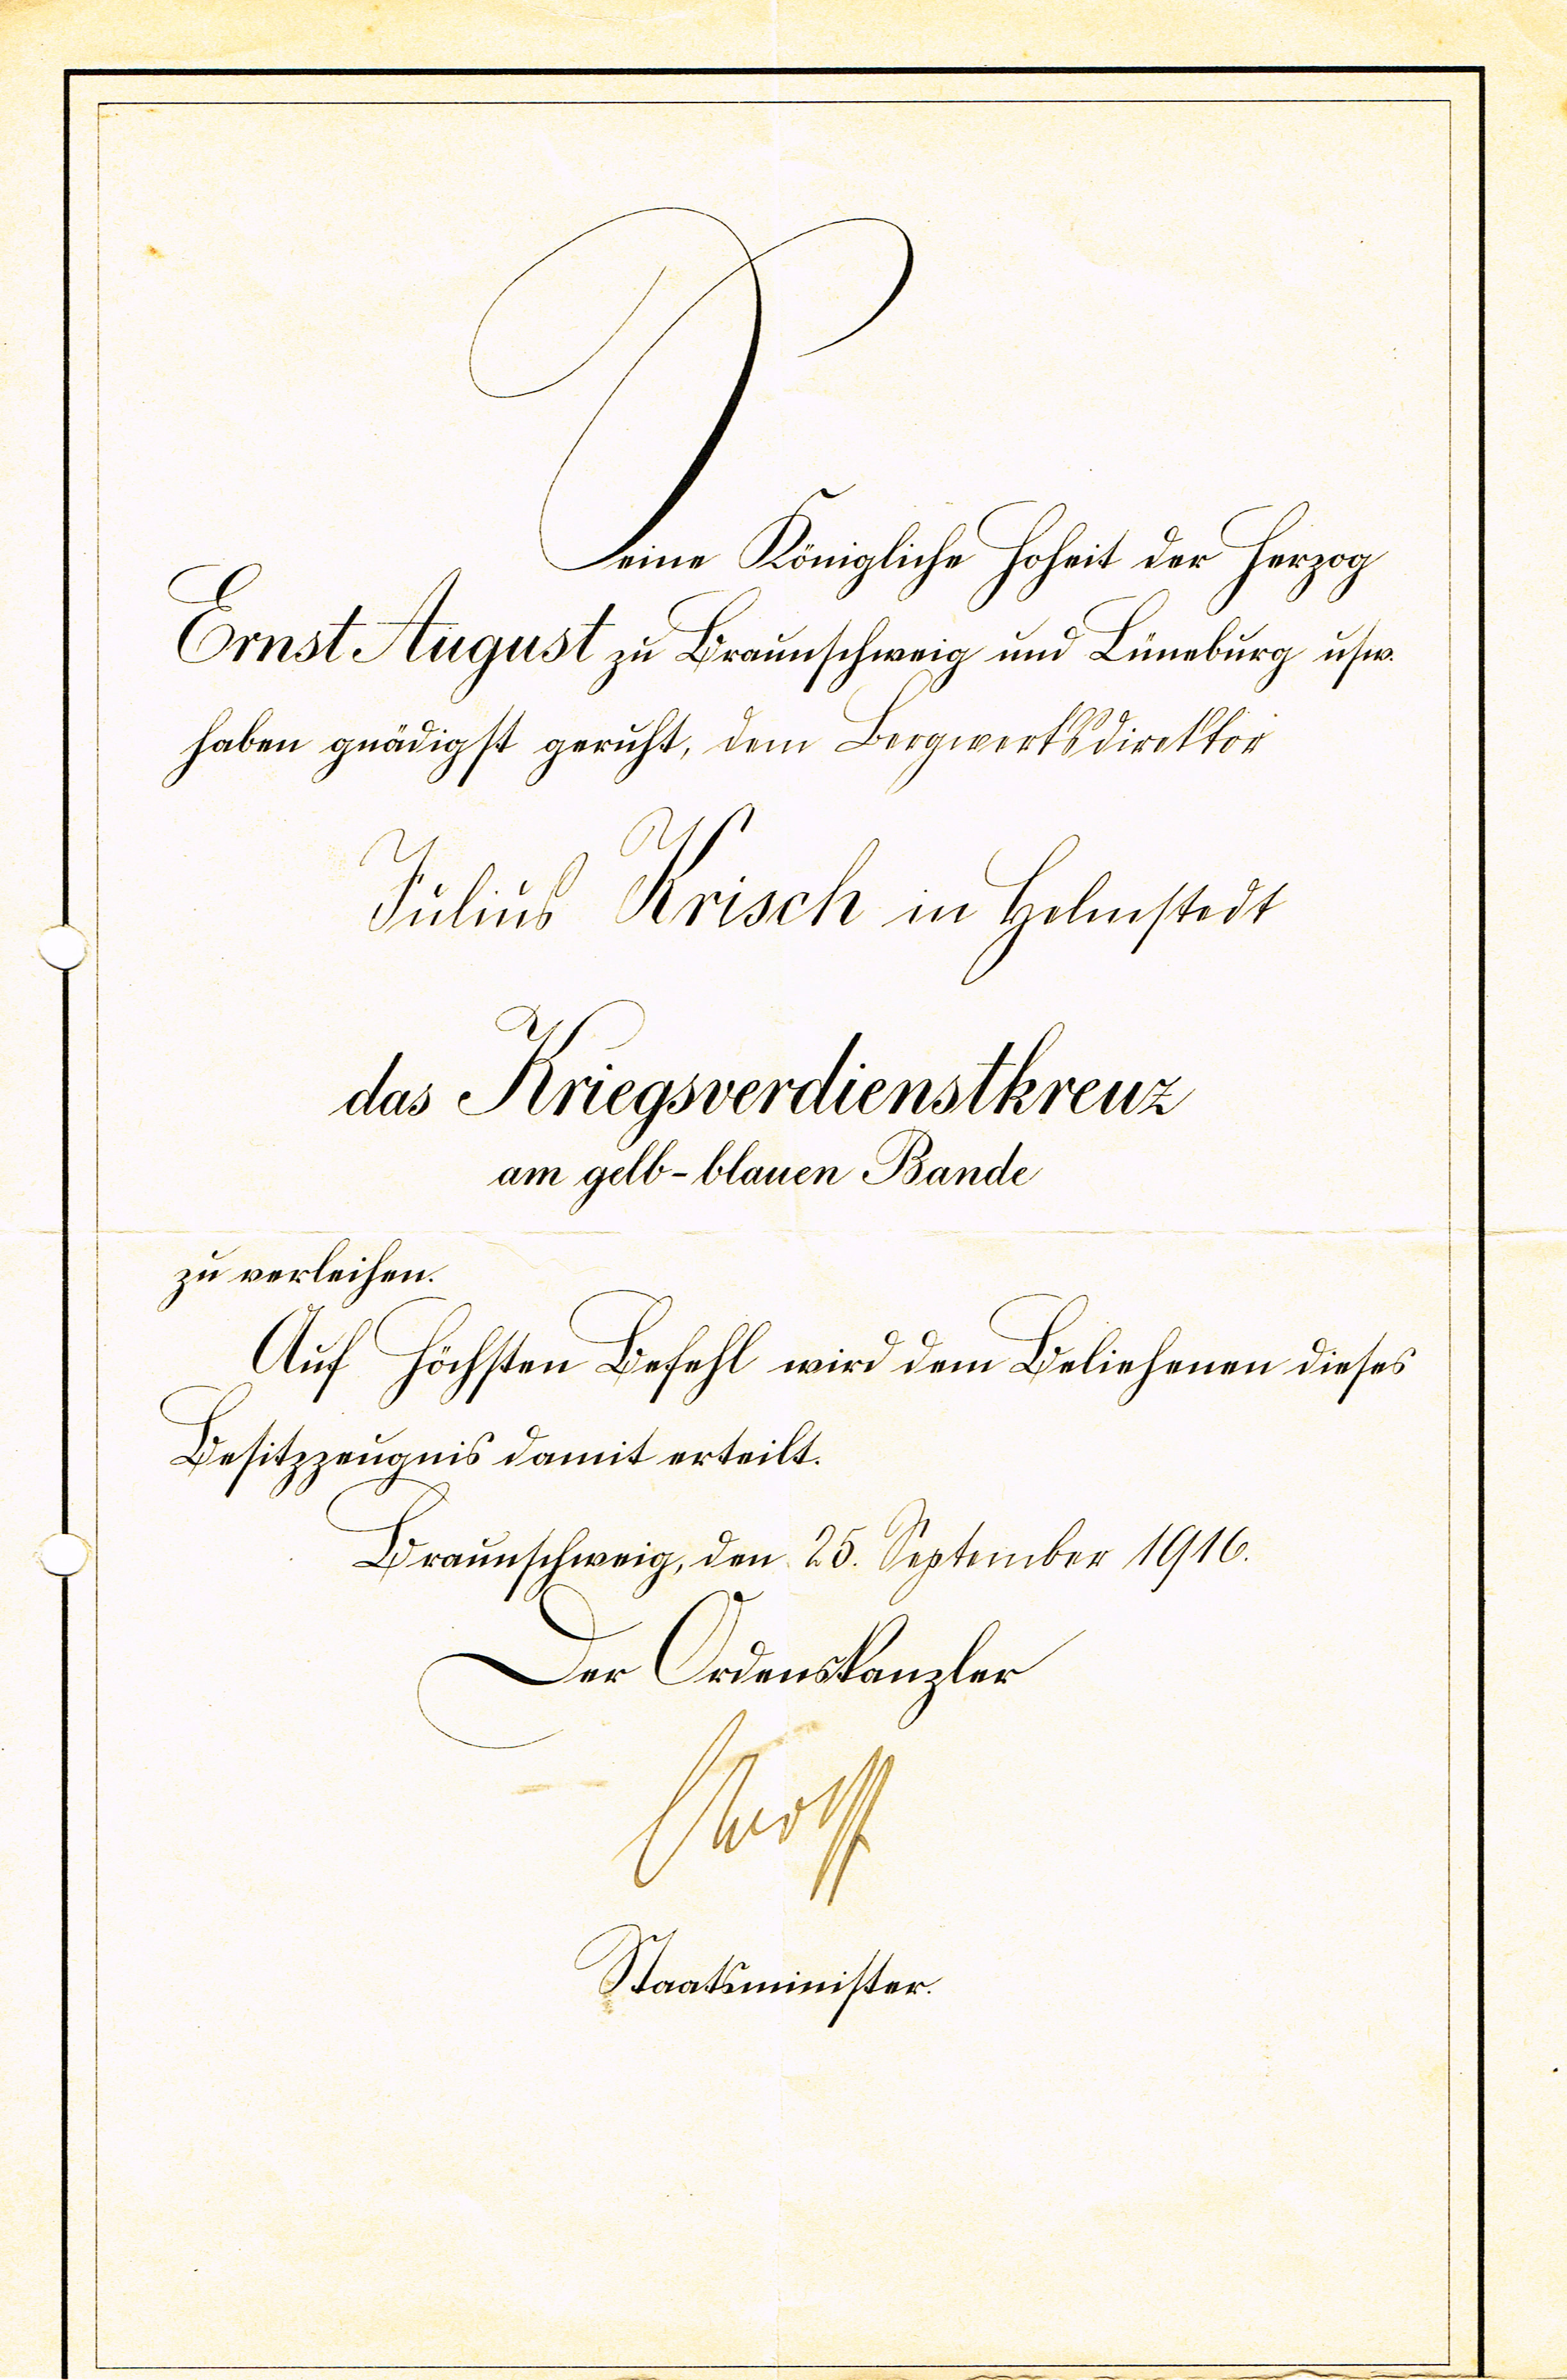 Seine Königliche Hoheit der Herzog
Ernst August zu Braunschweig und Lüneburg usw.
haben gnädigst geruht, dem Bergwerksdirektor
Julius Krisch in Helmstedt
das Kriegsverdienstkreuz
am gelb-blauen Bande
zu verleihen.
Auf Höchsten Befehl wird dem Beliehenen dieses
Besitzzeugnis damit erteilt.
Braunschweig, den 25. September 1916.
Der Ordenskanzler
Staatsminister.